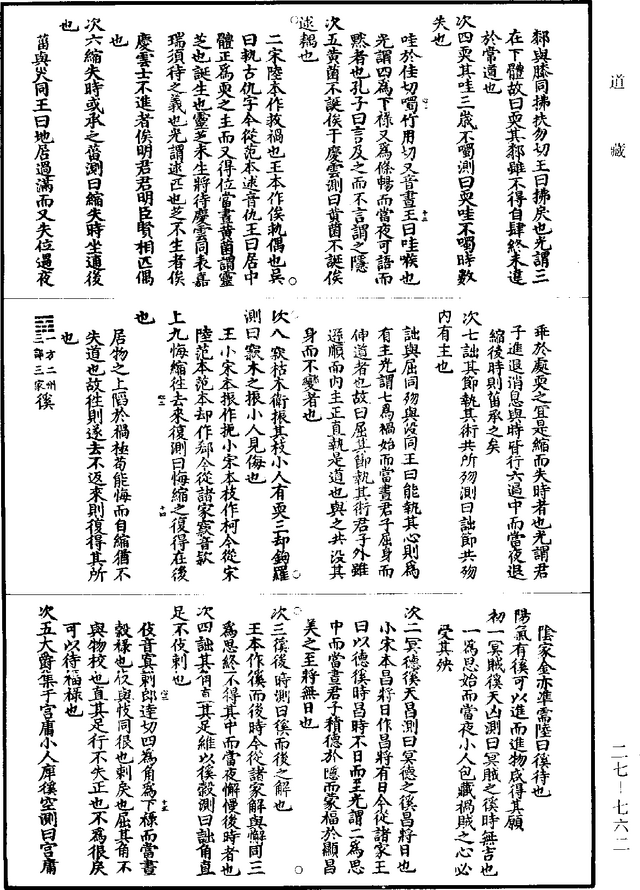 道藏
䣛與膝同拂扶勿切王曰拂戾也光謂三
在下體故曰耎其䣛雖不得自肆終未違
於常道也
次四耎其哇三歲不噣測曰耎哇不噣時數
失也
哇於佳切噣竹用切又音晝王曰哇喉也
光謂四為下祿又為條暢而當夜可語而
黙者也孔子曰言及之而不言謂之隱
次五黃菌不誕俟于慶雲測曰黃菌不誕俟
逑耦也
二宋陸本作救禍也王本作俟執偶也吳
曰執古仇字今從范本逑音仇王曰居中
體正為耎之主而又得位當晝黃菌謂靈
芝也誕生也靈芝未生將待慶雲同表嘉
瑞須待之義也光謂逑匹也芝不生者俟
慶雲士不進者俟明君君明臣賢相匹偶
也
次六縮失時或承之菑測曰縮失時坐逋後
也
菑與災同王曰地居過滿而又失位遇夜
乖於處耎之宜是縮而失時者也光謂君
子進退消息與時皆行六過中而當夜退
縮後時則菑承之矣
次七詘其節執其術共所歾測曰詘節共歾
內有主也
詘與屈同歾與歿同王曰能執其心則為
有主光謂七為禍始而當晝君子屈身而
伸道者也故曰屈其節執其術君子外雖
遜順而內主正直執是道也與之共没其
身而不變者也
次八窾枯木衝振其枝小人有耎三却鉤羅
測曰窾木之振小人見侮也
王小宋本振作挽小宋本枝作柯今從宋
陸范本范本却作郄今從諸家窾音款
上九悔縮往去來復測曰悔縮之復得在後
也
居物之上陷於禍極苟能悔而自縮猶不
失道也故往則遂去不返來則復得其所
也
一方二州三部三家徯
陰家金亦準需陸曰徯待也
陽氣有徯可以進而進物咸得其願
初一冥賊徯天凶測曰冥賊之徯時無吉也
一為思始而當夜小人包藏禍賊之心必
受其殃
次二冥德徯天昌測曰冥德之徯昌將日也
小宋本昌將日作昌將有日今從諸家王
曰以德徯時昌時不日而至光謂二為思
中而當晝君子積德於隱而蒙福於顯昌
美之至將無日也
次三徯後時測曰徯而後之解也
王本作徯而後時今從諸家解與懈同三
為思終不得其中而當夜懈慢後時者也
次四詘其角直其足維以徯穀測曰詘角直
足不伎刺也
伎音寘刺郎達切四為角為下祿而當晝
穀祿也伎與忮同很也刺戾也屈其角不
與物校也直其足行不失正也不為很戾
可以待福祿也
次五大爵集于宮庸小人庳徯空測曰宮庸
二七─七六二